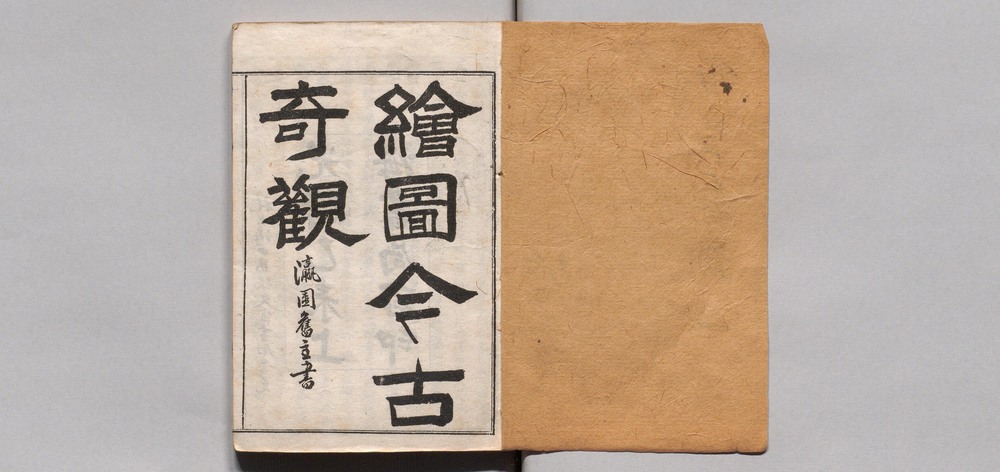 繪圖今古
奇觀
瀛園舊主書